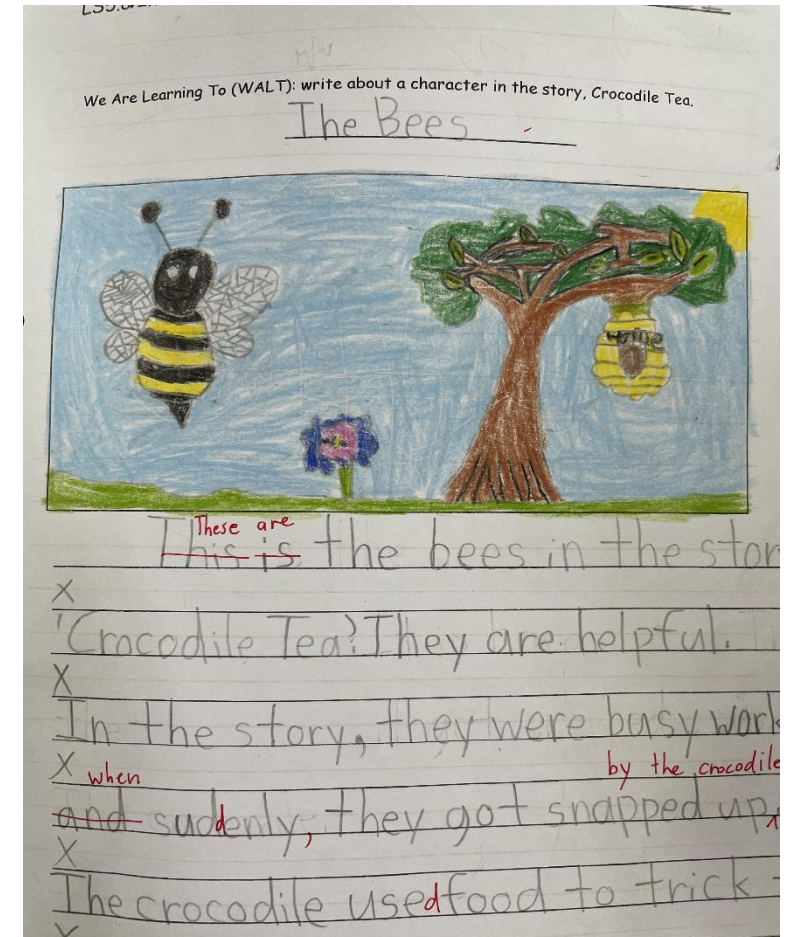 We Are Learning To (WALT): write about a character in the story, Crocodile Tea.
The Bees
These are
This is the bees in the stor
X
'Crocodile Tea'. They are helpful.
X
In the story, they were busy work
X when by the crocodile
and suddenly, they got snapped up
X
The crocodile used food to trick